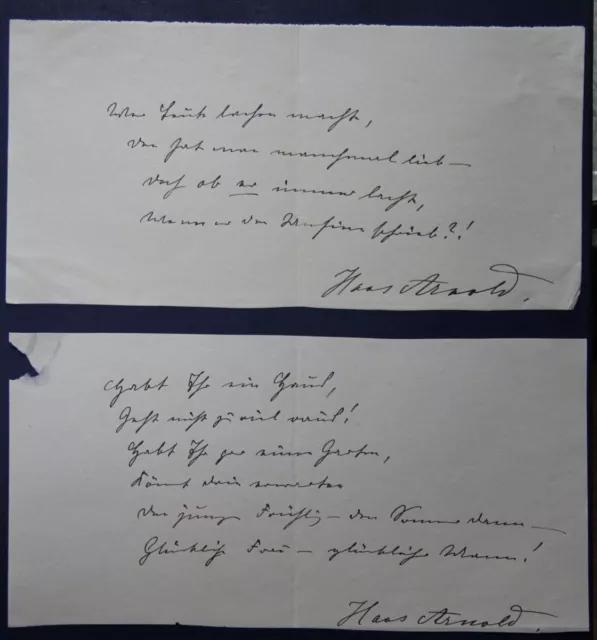 Wer Leute lachen macht,
den hat man manchmal lieb –
doch ob er immer lacht,
Wenn er den Unsinn schrieb?!
Hans Arnold.
Habt Ihr ein Haus,
Geht nicht zu viel raus!
Habt Ihr gar einen Garten,
Könnt drin erwarten
Den jungen Frühling – den Sommer dann –
Glückliche Frau – glücklicher Mann!
Hans Arnold.